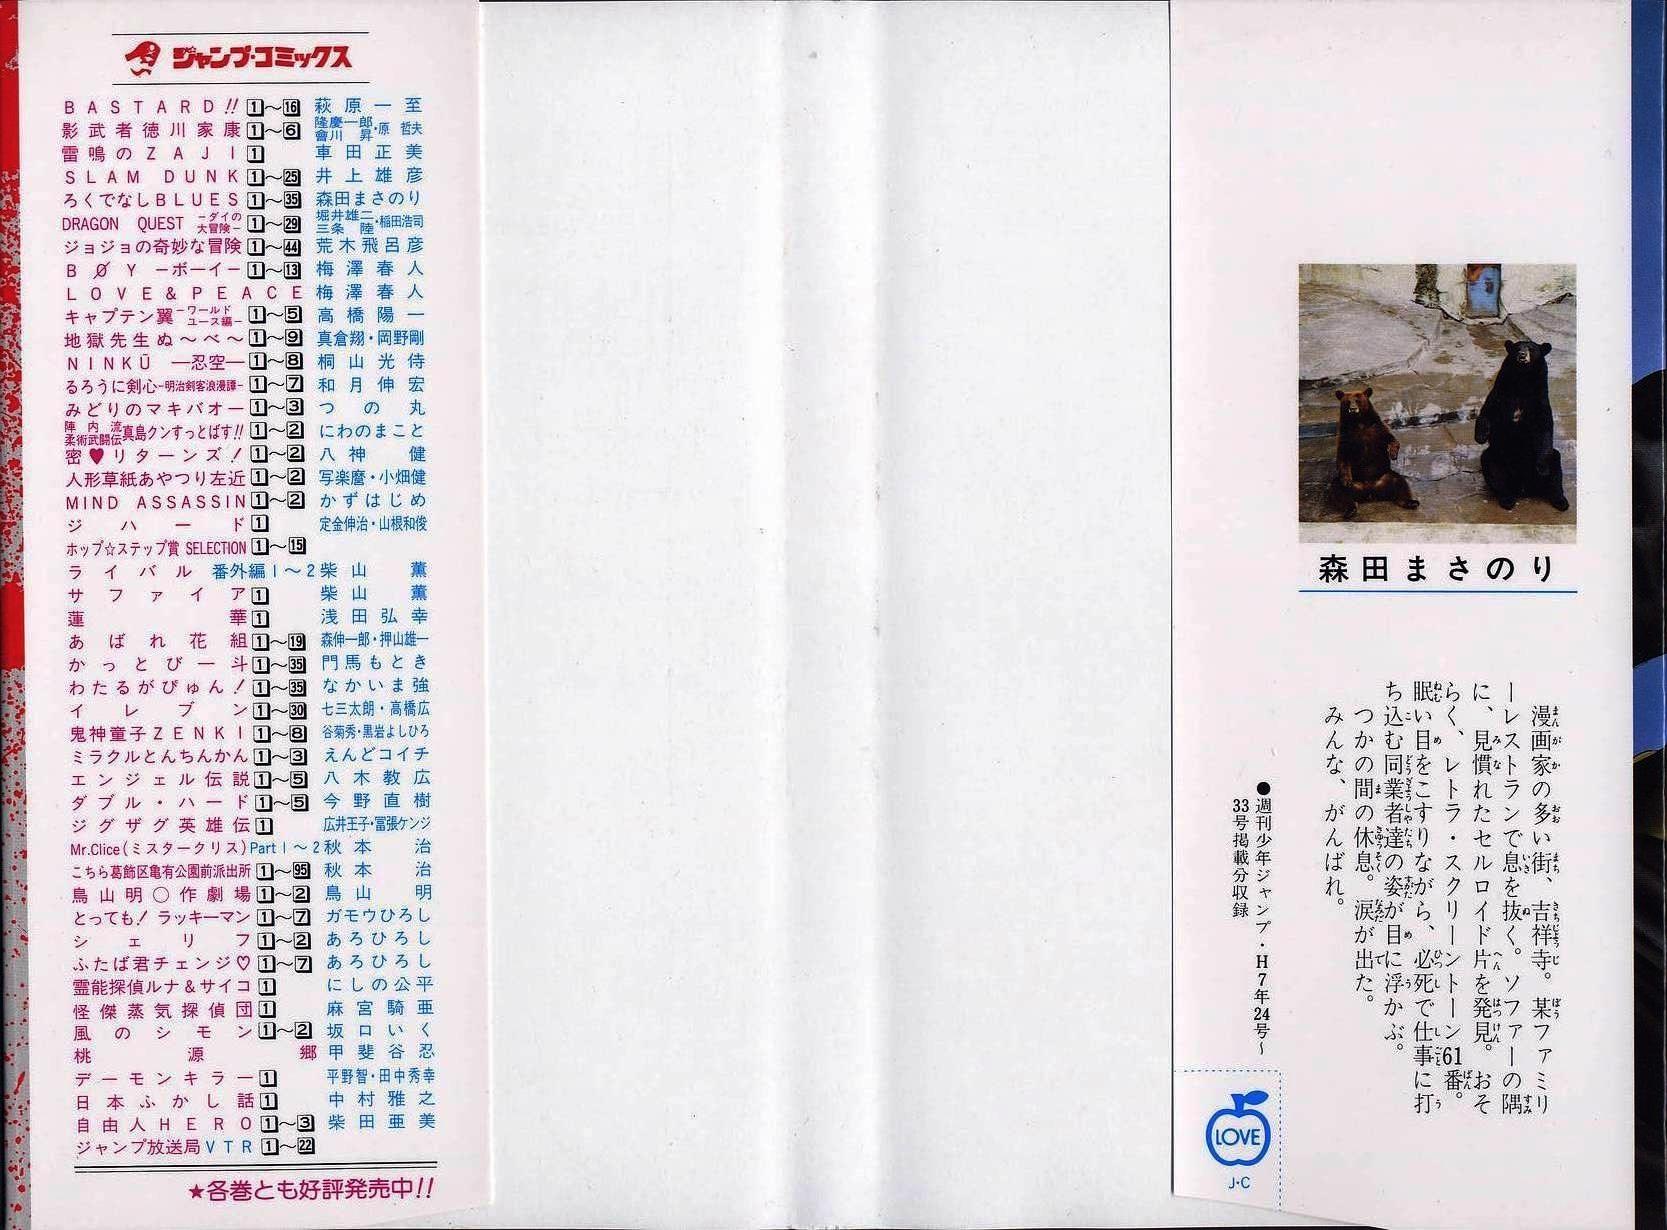 ジャンプ・コミックス
BASTARD!! 1～16 萩原一至
影武者徳川家康 1～6 隆慶一郎 會川昇・原哲夫
雷鳴のZAJI 1 車田正美
SLAM DUNK 1～25 井上雄彦
ろくでなしBLUES 1～35 森田まさのり
DRAGON QUEST －ダイの大冒険－ 1～29 堀井雄二 三条陸・稲田浩司
ジョジョの奇妙な冒険 1～44 荒木飛呂彦
BØY －ボーイ－ 1～13 梅澤春人
LOVE&PEACE 梅澤春人
キャプテン翼 －ワールドユース編－ 1～5 高橋陽一
地獄先生ぬ～べ～ 1～9 真倉翔・岡野剛
NINKŪ ―忍空― 1～8 桐山光侍
るろうに剣心－明治剣客浪漫譚－ 1～7 和月伸宏
みどりのマキバオー 1～3 つの丸
陣内流柔術武闘伝真島クンすっとばす!! 1～2 にわのまこと
密♥リターンズ! 1～2 八神健
人形草紙あやつり左近 1～2 写楽麿・小畑健
MIND ASSASSIN 1～2 かずはじめ
ジハード 1 定金伸治・山根和俊
ホップ☆ステップ賞 SELECTION 1～15
ライバル 番外編1～2 柴山薫
サファイア 1 柴山薫
蓮華 1 浅田弘幸
あばれ花組 1～19 森伸一郎・押山雄一
かっとび一斗 1～35 門馬もとき
わたるがぴゅん! 1～35 なかいま強
イレブン 1～30 七三太朗・高橋広
鬼神童子ZENKI 1～8 谷菊秀・黒岩よしひろ
ミラクルとんちんかん 1～3 えんどコイチ
エンジェル伝説 1～5 八木教広
ダブル・ハード 1～5 今野直樹
ジグザグ英雄伝 1 広井王子・冨張ケンジ
Mr.Clice(ミスタークリス) Part 1～2 秋本治
こちら葛飾区亀有公園前派出所 1～95 秋本治
鳥山明○作劇場 1～2 鳥山明
とっても!ラッキーマン 1～7 ガモウひろし
シェリフ 1～2 あろひろし
ふたば君チェンジ♡ 1～7 あろひろし
霊能探偵ルナ&サイコ 1 にしの公平
怪傑蒸気探偵団 1 麻宮騎亜
風のシモン 1～2 坂口いく
桃源郷 甲斐谷忍
デーモンキラー 1 平野智・田中秀幸
日本ふかし話 1 中村雅之
自由人HERO 1～3 柴田亜美
ジャンプ放送局VTR 1～22
★各巻とも好評発売中!!
森田まさのり
漫画家の多い街、吉祥寺。某ファミリ
ーレストランで息を抜く。ソファーの隅
に、見慣れたセルロイド片を発見。おそ
らく、レトラ・スクリーントーン61番。
眠い目をこすりながら、必死で仕事に打
ち込む同業者達の姿が目に浮かぶ。
つかの間の休息。涙が出た。
みんな、がんばれ。
●週刊少年ジャンプ・H7年24号～
33号掲載分収録
LOVE
J・C